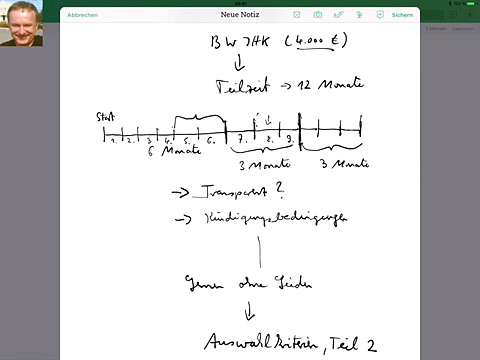 Abbrechen Neue Notiz Sichern
BW IHK (4.000 €)
Teilzeit → 12 Monate
Start
1. 2. 3. 4. 5. 6. 7. 8. 9.
6 Monate 3 Monate 3 Monate
→ Transparent?
→ Kündigungsbedingungen
Lernen ohne Leiden
Auswahlkriterien, Teil 2